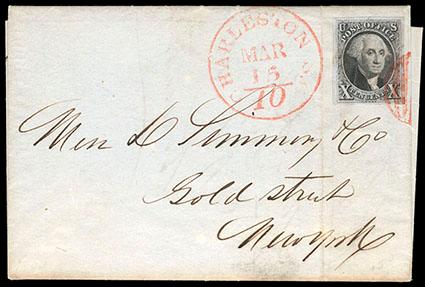 CHARLESTON S.C.
MAR
15
10
U S
POST OFFICE
X TEN CENTS X
Mess L & Co
Gold street
New york